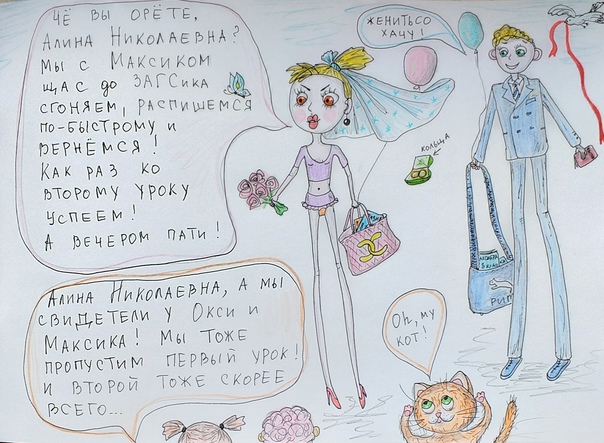 ЧЁ ВЫ ОРЁТЕ,
АЛИНА НИКОЛАЕВНА?
МЫ С МАКСИКОМ
ЩАС ДО ЗАГСИКА
СГОНЯЕМ, РАСПИШЕМСЯ
ПО-БЫСТРОМУ И
ВЕРНЁМСЯ!
КАК РАЗ КО
ВТОРОМУ УРОКУ
УСПЕЕМ!
А ВЕЧЕРОМ ПАТИ!
ЖЕНИТЬСО
ХАЧУ!
КОЛЬЦА
АЛГЕБРА
РИП
АЛИНА НИКОЛАЕВНА, А МЫ
СВИДЕТЕЛИ У ОКСИ И
МАКСИКА! МЫ ТОЖЕ
ПРОПУСТИМ ПЕРВЫЙ УРОК!
И ВТОРОЙ ТОЖЕ СКОРЕЕ
ВСЕГО...
Oh, MY
КОТ!